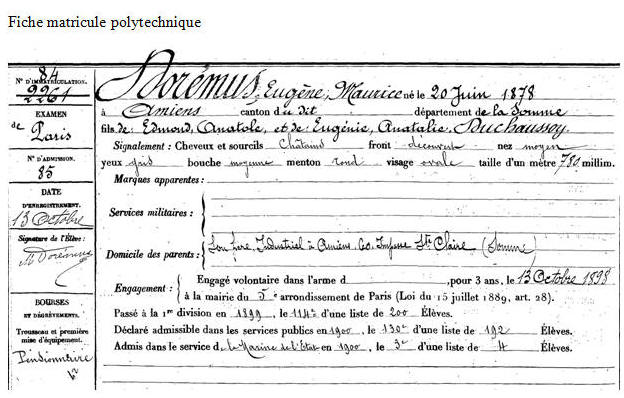 Fiche matricule polytechnique
84
N° D'IMMATRICULATION.
2261
EXAMEN
de
Paris
N° D'ADMISSION.
85
DATE
D'ENREGISTREMENT.
13 Octobre
Signature de l'Élève:
M Doremus
BOURSES
ET DÉGRÈVEMENTS.
Trousseau et première
mise d'équipement.
Pensionnaire
Dorémus, Eugène, Maurice né le 20 Juin 1878
à Amiens canton du dit département de la Somme
fils de: Edmond, Anatole, et de Eugénie, Anatalie, Duchaussoy.
Signalement: Cheveux et sourcils Châtains front découvert nez moyen
yeux gris bouche moyenne menton rond visage ovale taille d'un mètre 780 millim.
Marques apparentes:
Services militaires:
Domicile des parents: Son père, Industriel à Amiens, 60, Impasse Ste Claire (Somme)
Engagement: Engagé volontaire dans l'arme d , pour 3 ans, le 13 Octobre 1898
à la mairie du 5e arrondissement de Paris (Loi du 15 juillet 1889, art. 28).
Passé à la 1re division en 1899, le 114e d'une liste de 200 Élèves.
Déclaré admissible dans les services publics en 1900, le 130e d'une liste de 192 Élèves.
Admis dans le service de la Marine de l'État en 1900, le 3e d'une liste de 4 Élèves.